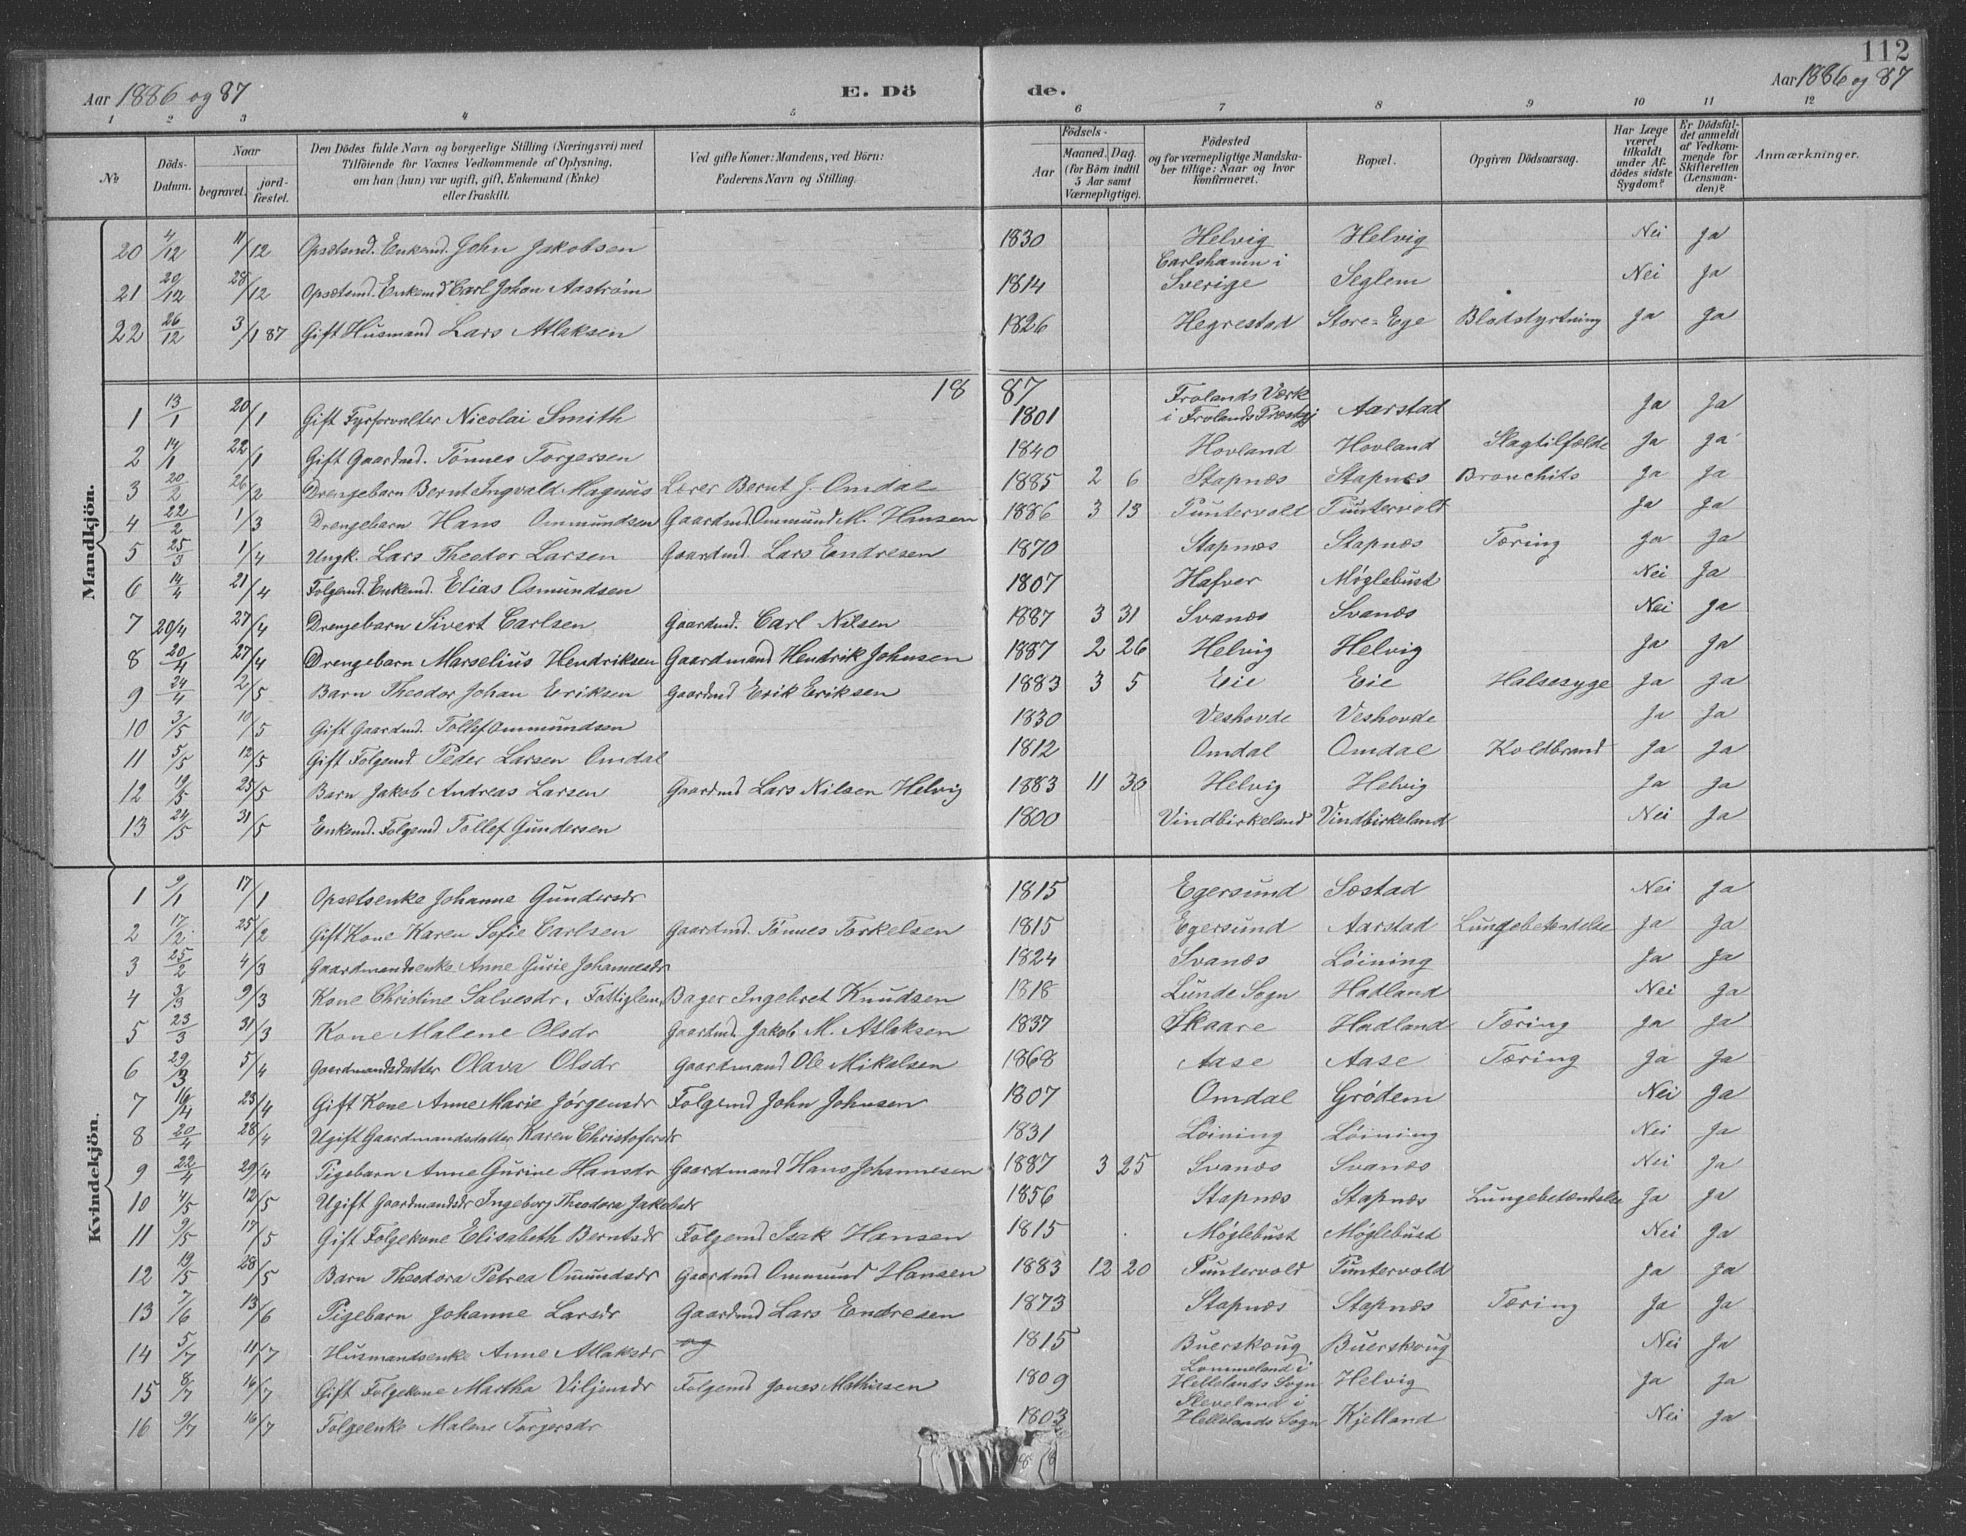 112
Aar 1886 og 87 E. Dö de. Aar 1886 og 87
1 2 3 4 5 6 7 8 9 10 11 12
No
Döds-Datum.
Naar begravet. jordfæstet.
Den Dödes fulde Navn og borgerlige Stilling (Næringsvei) med Tilföiende for Voxnes Vedkommende af Oplysning, om han (hun) var ugift, gift, Enkemand (Enke) eller fraskilt.
Ved gifte Koner: Mandens, ved Börn: Faderens Navn og Stilling.
Födsels-
Aar Maaned. Dag. (for Börn indtil 5 Aar samt Værnepligtige).
Födested og for værnepligtige Mandskaber tillige: Naar og hvor konfirmeret.
Bopæl.
Opgiven Dödsaarsag.
Har Læge været tilkaldt under Afdödes sidste Sygdom?
Er Dödsfaldet anmeldt af Vedkommende for Skifteretten (Lensmanden)?
Anmærkninger.
Mandkjön.
20 4/12 11/12 Opsetsmd. Enkemd. John Jakobsen 1830 Helvig Helvig Nei Ja
21 20/12 28/12 Opsetsmd. Enkemd Carl Johan Aastrøm 1814 Carlshamn i Sverige Seglem Nei Ja
22 26/12 3/1 87 Gift Husmand Lars Atlaksen 1826 Hegrestad Store-Ege Blodstyrtning Ja Ja
18 87
1 13/1 20/1 Gift Fyrforvalter Nicolai Smith 1801 Frolands Værk i Frolands Præstgj Aarstad Ja Ja
2 14/1 22/1 Gift Gaardmd. Tönnes Torgersen 1840 Hovland Hovland Slagtilfælde Ja Ja
3 20/2 26/2 Drengebarn Bernt Ingvald Magnus Lærer Bernt J. Omdal 1885 2 6 Stapnæs Stapnæs Bronchits Ja Ja
4 22/2 1/3 Drengebarn Hans Ommundsen Gaardmd. Ommund M. Hansen 1886 3 13 Puntervold Puntervold Ja Ja
5 25/3 1/4 Ungk. Lars Theodor Larsen Gaardmd. Lars Endresen 1870 Stapnæs Stapnæs Tæring Ja Ja
6 14/4 21/4 Folgemd. Enkemd. Elias Osmundsen 1807 Hafver Møglebust Nei Ja
7 20/4 27/4 Drengebarn Sivert Carlsen Gaardmd. Carl Nilsen 1887 3 31 Svanæs Svanæs Nei Ja
8 20/4 27/4 Drengebarn Marselius Hendriksen Gaardmand Hendrik Johnsen 1887 2 26 Helvig Helvig Ja Ja
9 24/4 2/5 Barn Theodor Johan Eriksen Gaardmd Erik Eriksen 1883 3 5 Eie Eie Halsesyge Ja Ja
10 3/5 10/5 Gift Gaardmd. Tollef Ommundsen 1830 Veshovde Veshovde Ja Ja
11 5/5 12/5 Gift Folgemd Peder Larsen Omdal 1812 Omdal Omdal Koldbrand Ja Ja
12 19/5 25/5 Barn Jakob Andreas Larsen Gaardmd Lars Nilsen Helvig 1883 11 30 Helvig Helvig Ja Ja
13 24/5 31/5 Enkemd. Folgemd Tollef Gundersen 1800 Vindbirkeland Vindbirkeland Nei Ja
Kvindekjön.
1 9/1 17/1 Opsetsenke Johanne Gundersdr 1815 Egersund Sæstad Nei Ja
2 17/2 25/2 Gift Kone Karen Sofie Carlsen Gaardmd. Tönnes Torkelsen 1815 Egersund Aarstad Lungebetændelse Ja Ja
3 25/2 4/3 Gaardmandsenke Anne Gurie Johannesdr 1824 Svanæs Löining Ja Ja
4 3/3 9/3 Kone Christine Salvesdr. Fattiglem Bager Ingebret Knudsen 1818 Lunde Sogn Hadland Nei Ja
5 23/3 31/3 Kone Malene Olsdr Gaardmd. Jakob M. Atlaksen 1837 Skaare Hadland Tæring Ja Ja
6 29/3 5/4 Gaardmandsdatter Olava Olsdr Gaardmand Ole Mikalsen 1868 Aase Aase Tæring Ja Ja
7 16/4 23/4 Gift Kone Anne Marie Jørgensdr Folgemd John Johnsen 1807 Omdal Grødem Nei Ja
8 20/4 28/4 Ugift Gaardmandsdatter Karen Christofersdr 1831 Löining Löining Nei Ja
9 22/4 29/4 Pigebarn Anne Gurine Hansdr Gaardmand Hans Johannesen 1887 3 25 Svanæs Svanæs Nei Ja
10 4/5 12/5 Ugift Gaardmandsdr Ingeborg Theodora Jakobsdr 1856 Stapnæs Stapnæs Lungebetændelse Ja Ja
11 9/5 17/5 Gift Folgekone Elisabeth Berntsdr Folgemd Isak Hansen 1815 Møglebust Møglebust Nei Ja
12 19/5 28/5 Barn Theodora Petrea Omundsdr Gaardmd Ommund Hansen 1883 12 20 Puntervold Puntervold Ja Ja
13 7/6 13/6 Pigebarn Johanne Larsdr Gaardmd Lars Endresen 1873 Stapnæs Stapnæs Tæring Ja Ja
14 5/7 11/7 Husmandsenke Anne Atlaksdr 1815 Buerskoug Buerskoug Nei Ja
15 8/7 16/7 Gift Folgekone Martha Viljemsdr Folgemd Jonas Mathiesen 1809 Lommeland i Hellelands Sogn Helvig Ja Ja
16 9/7 16/7 Folgeenke Malene Torgersdr 1803 Sleveland i Hellelands Sogn Kjelland Nei Ja